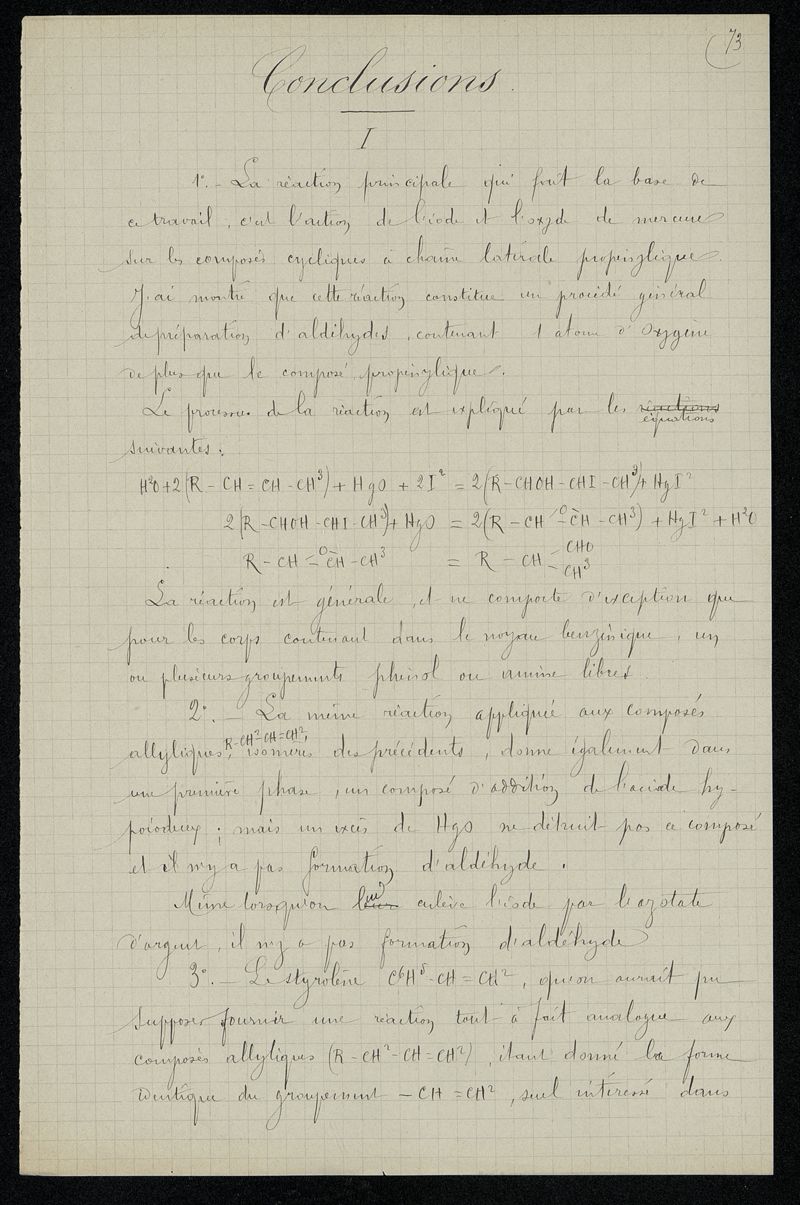 73
Conclusions.
I
1°. - La réaction principale qui fait la base de
ce travail, c'est l'action de l'iode et l'oxyde de mercure
sur les composés cycliques à chaîne latérale propénylique.
J'ai montré que cette réaction constitue un procédé général
de préparation d'aldéhydes, contenant 1 atome d'oxygène
de plus que le composé propénylique.
Le processus de la réaction est expliqué par les réactions équations
suivantes:
H²O + 2(R - CH = CH - CH³) + HgO + 2I² = 2(R - CHOH - CHI - CH³) + HgI²
2(R - CHOH - CHI - CH³) + HgO = 2(R - CH - O - CH - CH³) + HgI² + H²O
R - CH - O - CH - CH³ = R - CH - CHO - CH³
La réaction est générale, et ne comporte d'exception que
pour les corps contenant dans le noyau benzénique, un
ou plusieurs groupements phénol ou amine libres.
2°. - La même réaction appliquée aux composés
allyliques, R-CH²-CH=CH², isomères des précédents, donne également dans
une première phase, un composé d'addition de l'acide hy-
poiodeux; mais un excès de HgO ne détruit pas ce composé
et il n'y a pas formation d'aldéhyde.
Même lorsqu'on lui enlève l'iode par l'azotate
d'argent, il n'y a pas formation d'aldéhyde
3°. - Le styrolène C⁶H⁵-CH=CH², qu'on aurait pu
supposer fournir une réaction tout à fait analogue aux
composés allyliques (R - CH² - CH = CH²), étant donné la forme
identique du groupement - CH = CH², seul intéressé dans